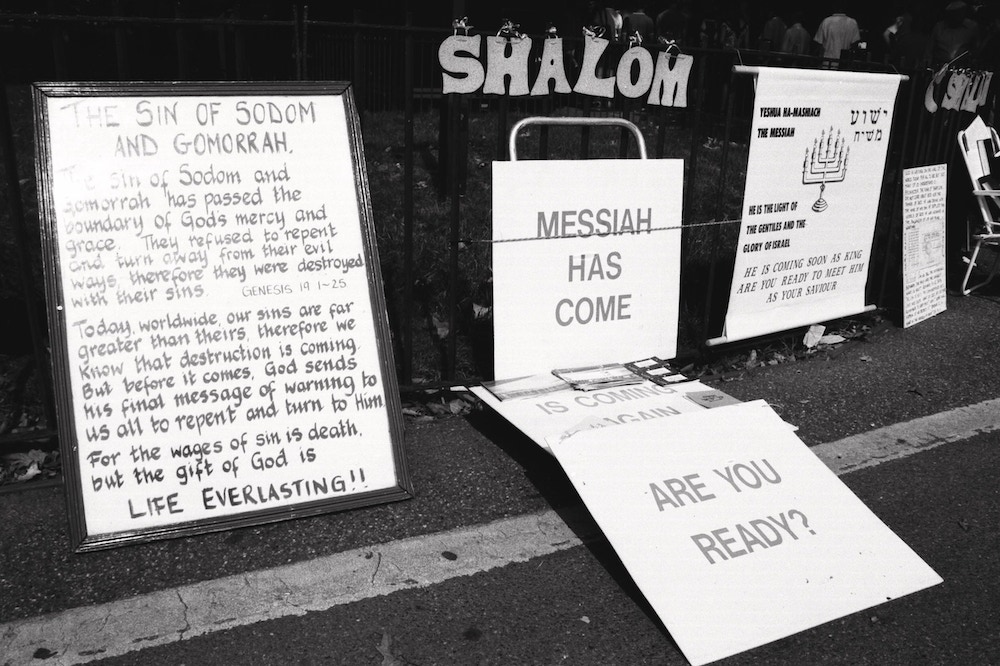 THE SIN OF SODOM
AND GOMORRAH.
The sin of Sodom and
Gomorrah has passed the
boundary of Gods mercy and
grace. They refused to repent
and turn away from their evil
ways, therefore they were destroyed
with their sins. GENESIS 19 1-25
Today, worldwide, our sins are far
greater than theirs, therefore we
Know that destruction is coming.
But before it comes, God sends
his final message of warning to
us all to repent and turn to Him.
For the wages of sin is death,
but the gift of God is
LIFE EVERLASTING!!
SHALOM
MESSIAH
HAS
COME
IS COMING
AGAIN
ARE YOU
READY?
YESHUA HA-MASHIACH
THE MESSIAH
ישוע
משיח
HE IS THE LIGHT OF
THE GENTILES AND THE
GLORY OF ISRAEL
HE IS COMING SOON AS KING
ARE YOU READY TO MEET HIM
AS YOUR SAVIOUR